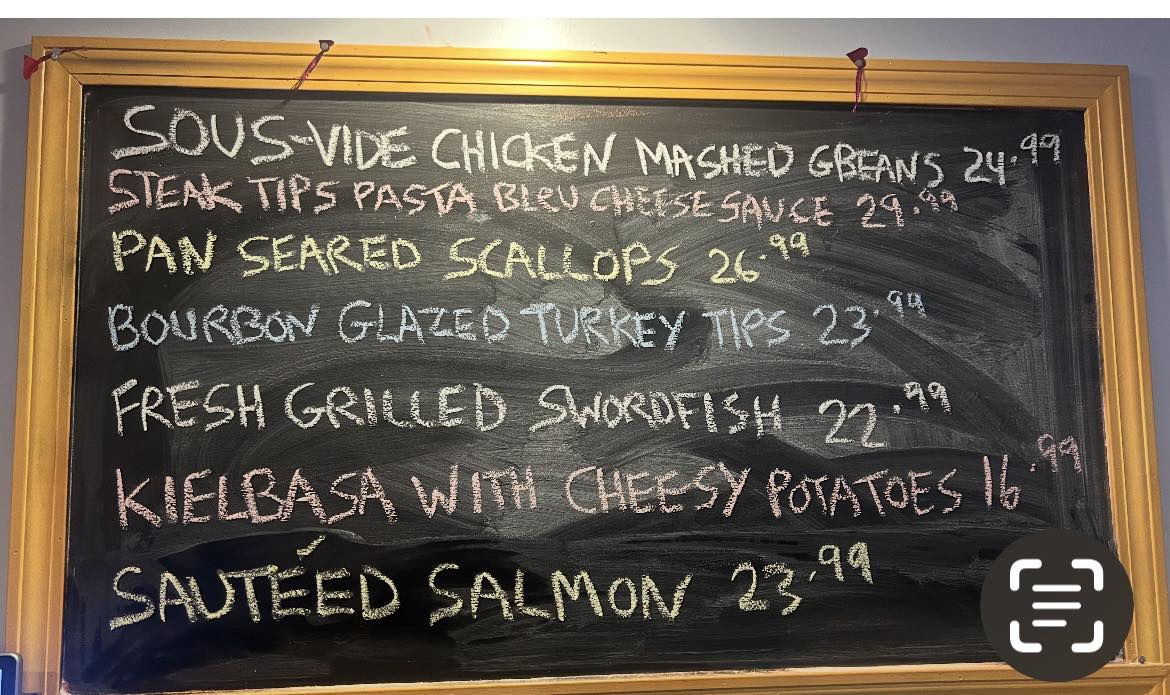 SOUS-VIDE CHICKEN MASHED GBEANS 24.99
STEAK TIPS PASTA BLEU CHEESE SAUCE 29.99
PAN SEARED SCALLOPS 26.99
BOURBON GLAZED TURKEY TIPS 23.99
FRESH GRILLED SWORDFISH 22.99
KIELBASA WITH CHEESY POTATOES 16.99
SAUTÉED SALMON 23.99